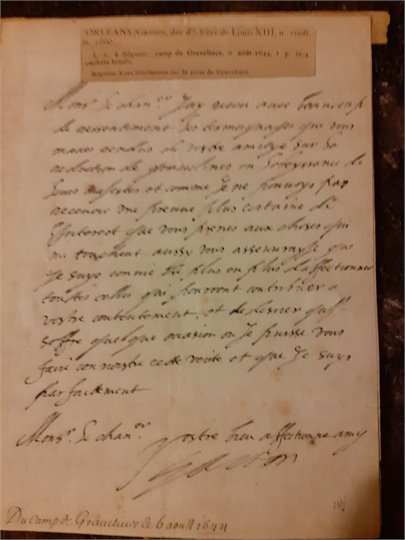 ORLÉANS (Gaston, duc d'), frère de Louis XIII, n. 1608,
m. 1660.
L. s. à Séguier, camp de Gravelines, 6 août 1644, 1 p. in-4,
cachets brisés.
Réponse à ses félicitations sur la prise de Gravelines.
Monsr. le chan.er J'ay receu avec beaucoup
de ressentiment les tesmoignages que vous
mavez rendus de vostre amitye sur la
reduction de graveslines en lobeyssance de
leurs majestes et comme je ne pouvoys pas
recevoir une preuve plus certaine de
linterest que vous prenes aux choses qui
me touchent aussy vous asseureray je que
je suys convie de plus en plus daffectionner
toutes celles qui pourront contribuer a
vostre contentement, et de desirer quil
soffre quelque occasion ou je puisse vous
faire connoistre cette verite et que je suys
parfaictement
Monsr. le chan.er
Vostre bien affectionne amy
Gaston
Du camp de Gravelines le 6 aout 1644